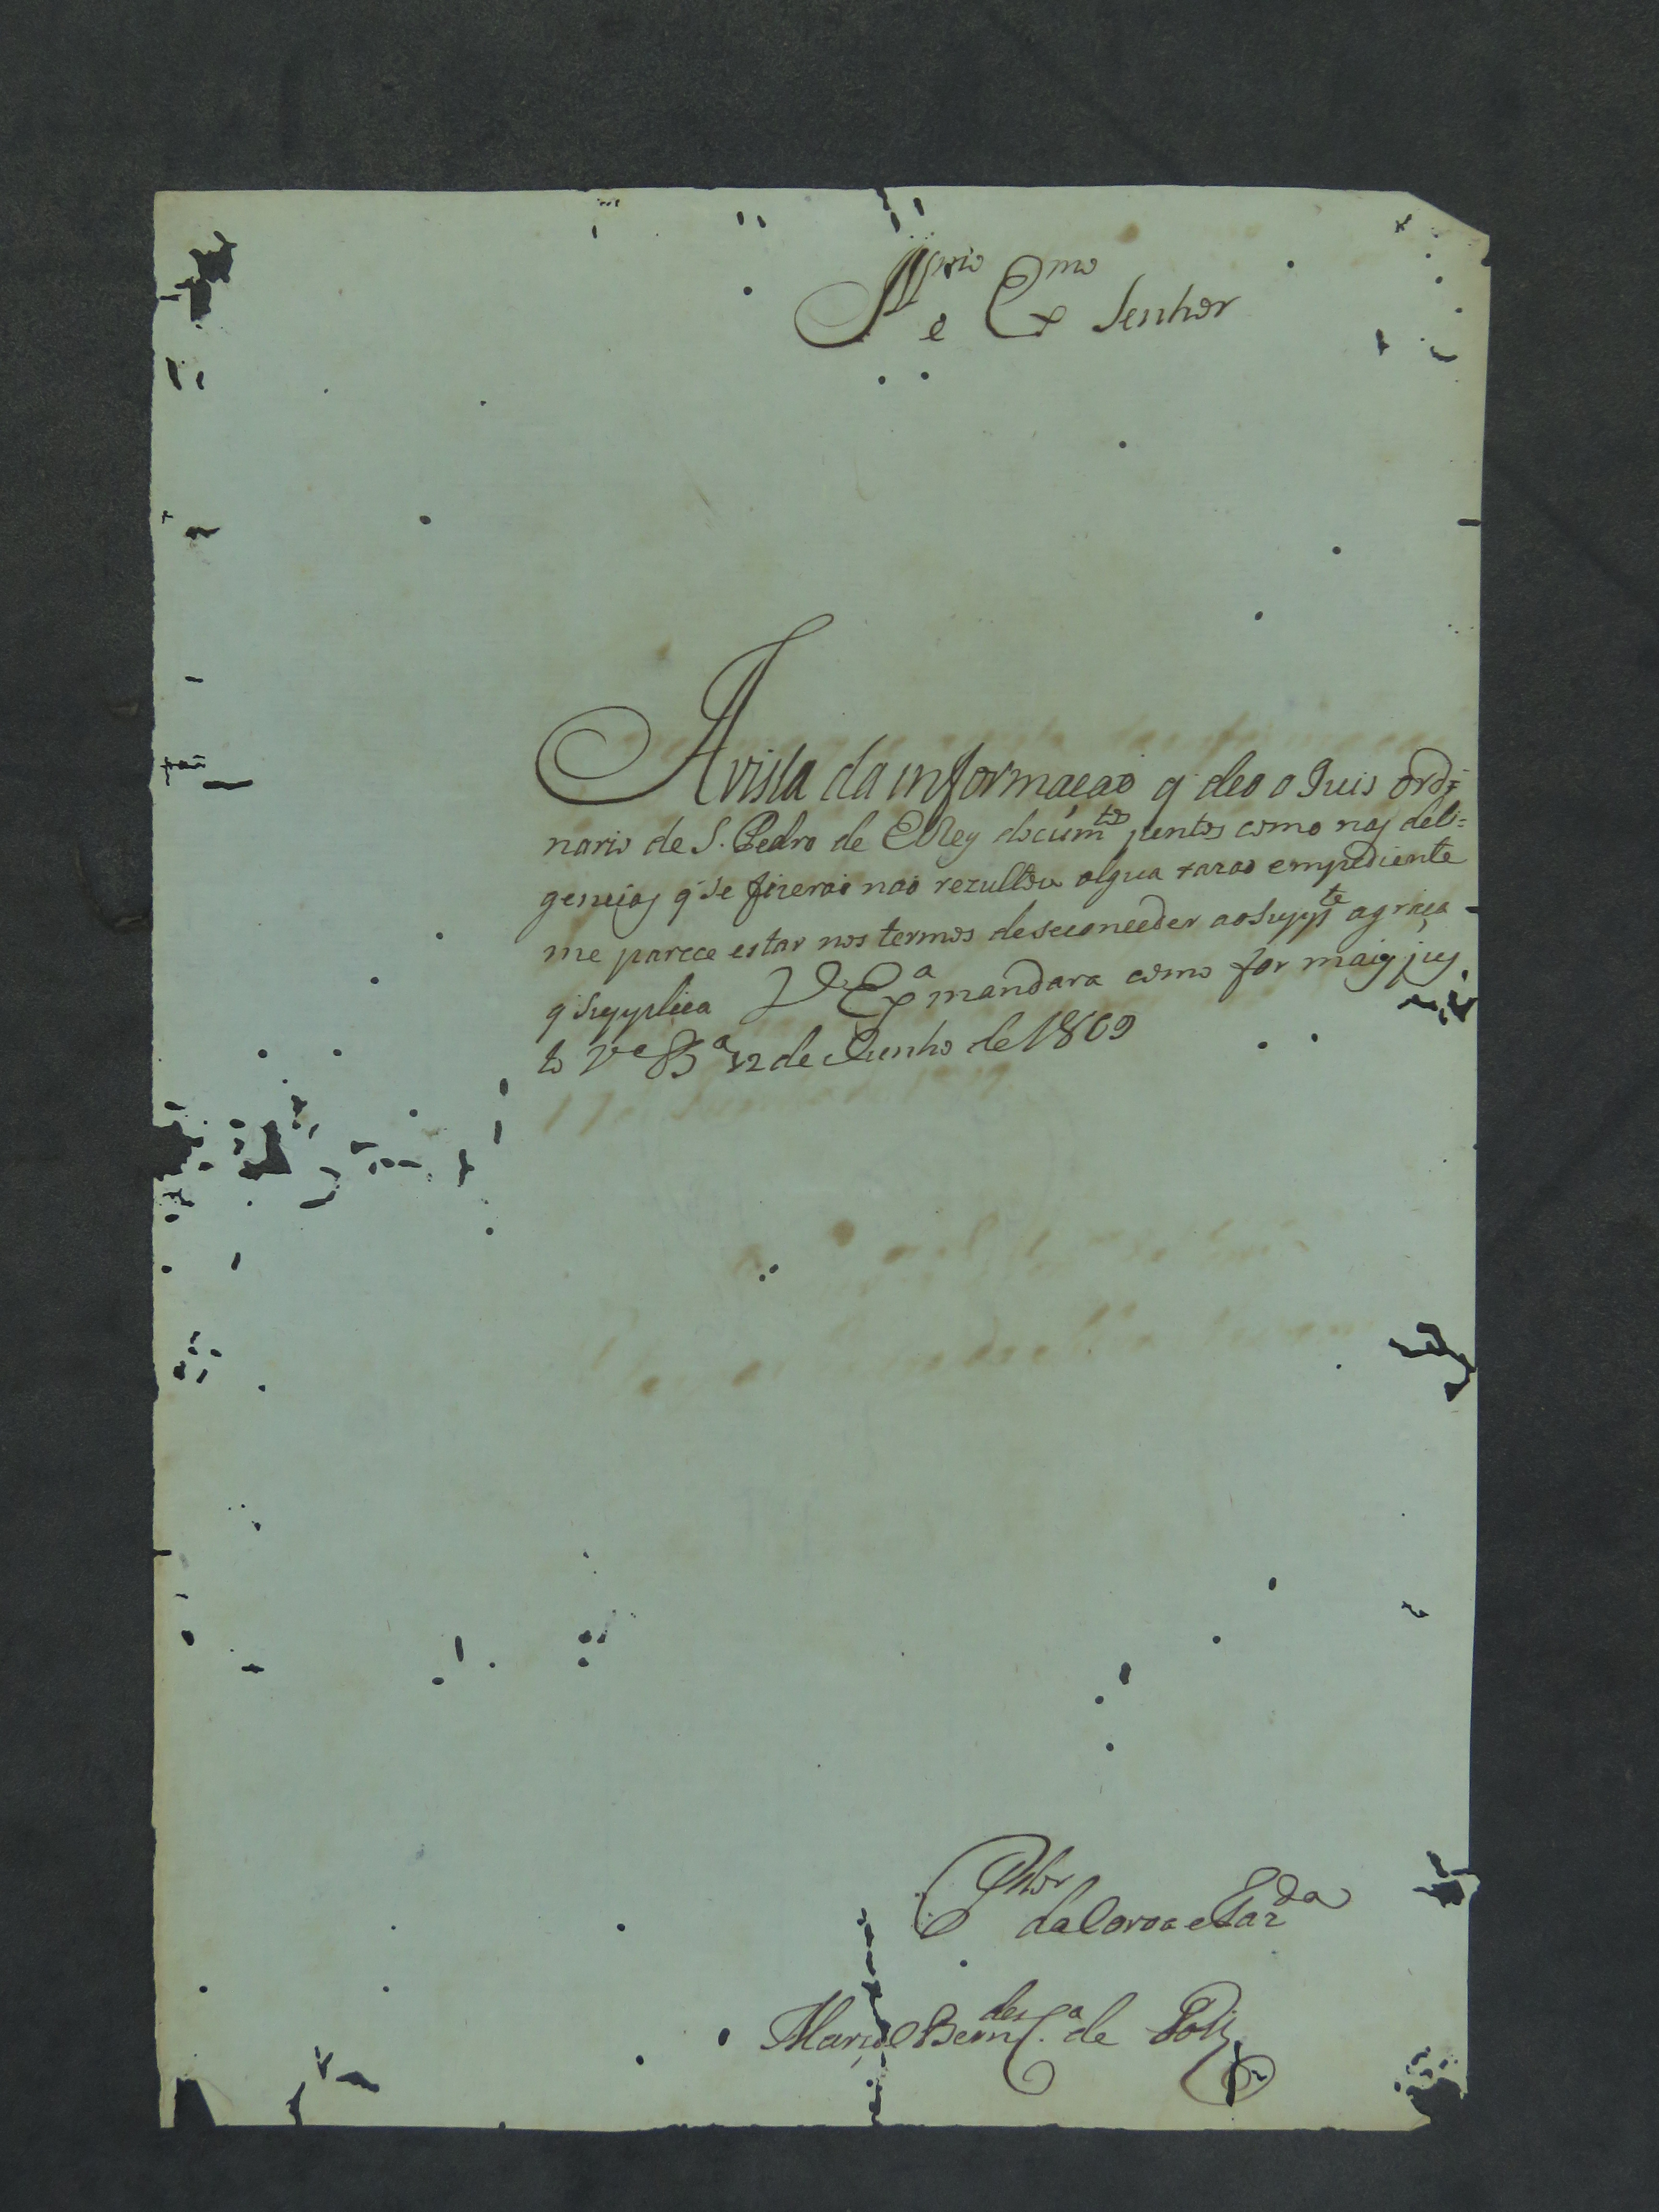 Illmo e Exmo Senhor
Avista da informaçaõ q deo o Juis ordi=
nario de S. Pedro de ElRey docúmtos juntos como nas deli=
gencias q se fizeraõ naõ rezultou algua razaõ empediente
me parece estar nos termos deseconceder ao Suppte agraça
q supplica V Exa mandara como for mais jus
to Va Ba 12 de Junho de 1809
da Coroa e Fazda
de